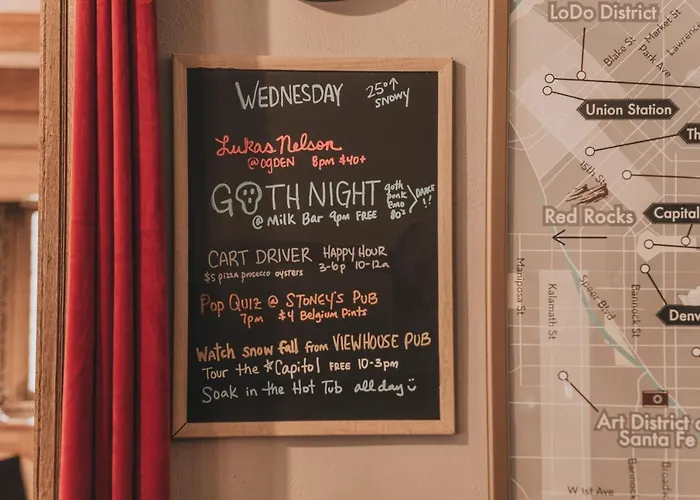 WEDNESDAY 25° SNOWY
Lukas Nelson
@OGDEN 8pm $40+
GOTH NIGHT goth punk emo 80s DANCE!!
@ Milk Bar 9pm FREE
CART DRIVER HAPPY HOUR
$5 pizza prosecco oysters 3-6p 10-12a
Pop Quiz @ STONEY'S PUB
7pm $4 Belgium Pints
Watch snow fall from VIEWHOUSE PUB
Tour the Capitol FREE 10-3pm
Soak in the Hot Tub all day
LoDo District
Market St
Lawrence
Blake St
Park Ave
Union Station
Th
15th St
Red Rocks
Capital
Mariposa St
Kalamath St
Speer Blvd
Bannock St
Denv
Art District o
Santa Fe
Bannock
Broadw
W 1st Ave